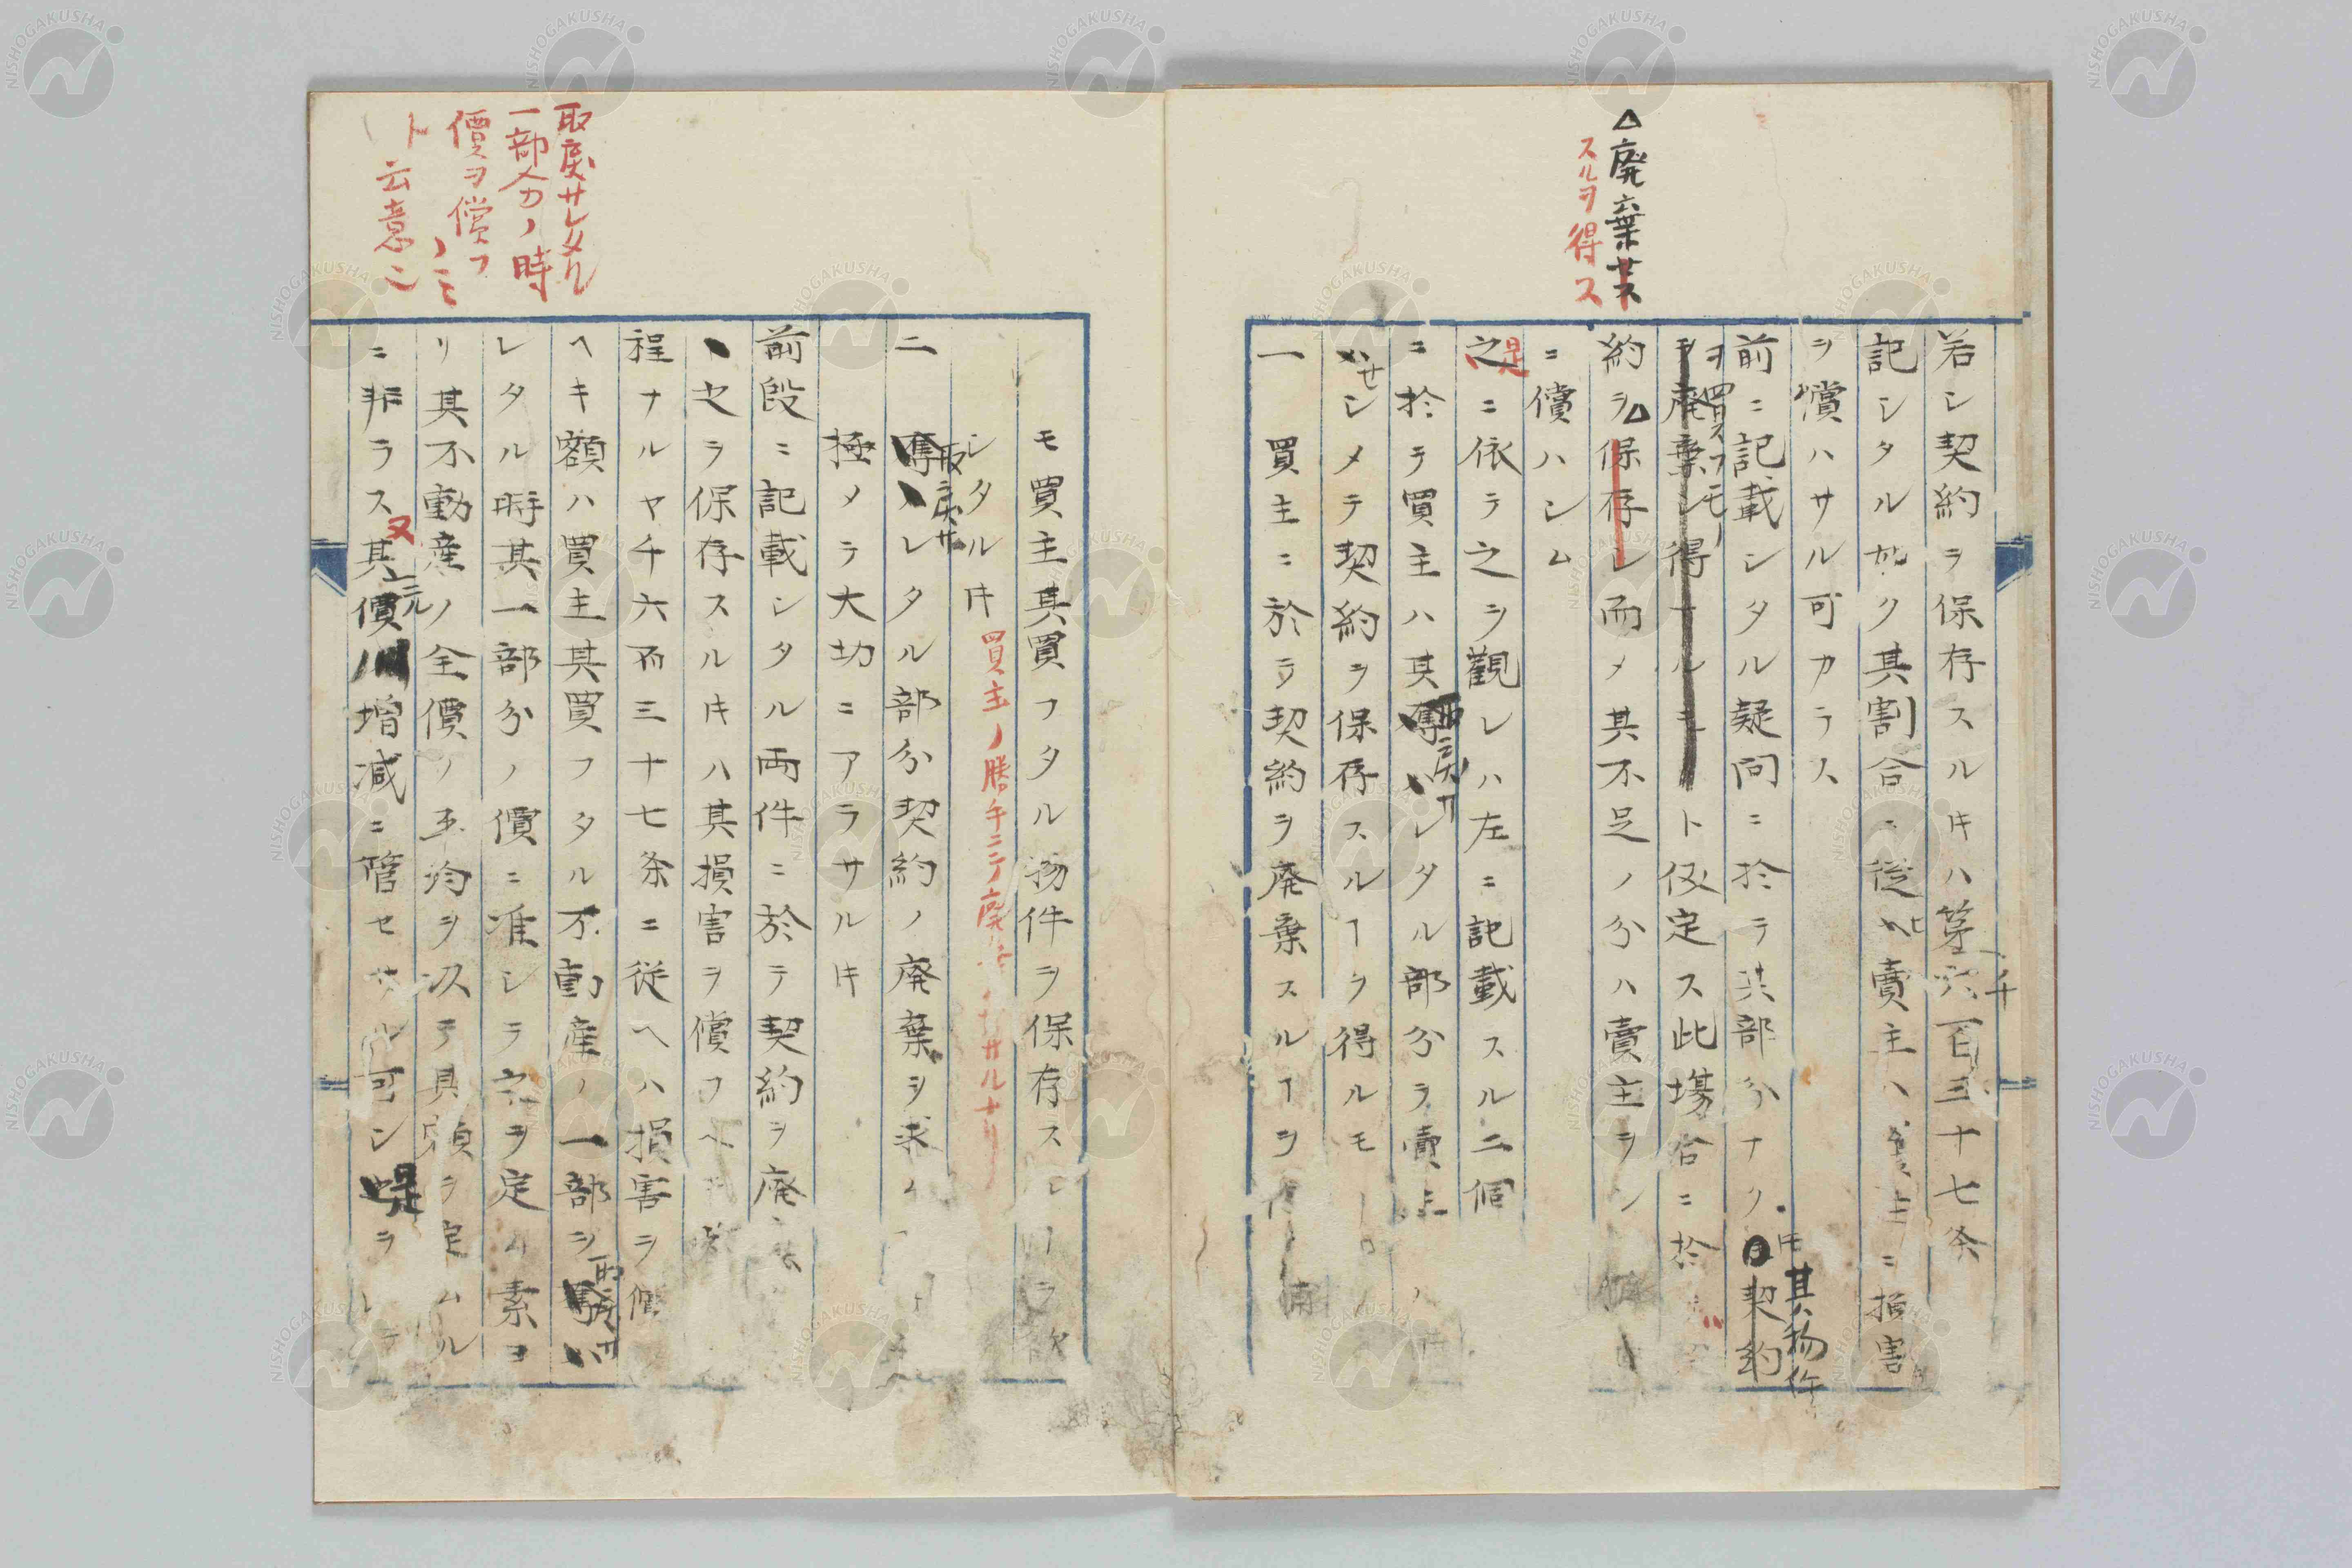 △廃棄セス
スルヲ得ス
若シ契約ヲ保存スルキハ第千六百三十七条
記シタル如ク其割合ニ従ヒ賣主ハ買主ニ損害
ヲ償ハサル可カラス
前ニ記載シタル疑問ニ於テ其部分ナクキ其物件
ヲ買フモ
契約
ヲ廃棄シ得ナルモト仮定ス此場合ニ於
約ヲ△保存シ而メ其不足ノ分ハ賣主ヲシ
ニ償ハシム
是
之ニ依テ之ヲ観レハ左ニ記載スル二個
ニ於テ買主ハ其取戻サレタル部分ヲ賣主
セシメテ契約ヲ保存スルヿヲ得ルモ
一 買主ニ於テ契約ヲ廃棄スルヿヲ
モ買主其買フタル物件ヲ保存スルヿヲ欲
シタルキ買主ノ勝手ニテ廃棄セサルナリ
二 取戻サレタル部分契約ノ廃棄ヲ求ム
極メテ大切ニアラサルキ
前段ニ記載シタル両件ニ於テ契約ヲ廃
之ヲ保存スルキハ其損害ヲ償フヘキ
程ナルヤ千六百三十七条ニ従ヘハ損害ヲ償
ヘキ額ハ買主其買フタル不動産ノ一部ヲ取戻サ
レタル時其一部分ノ價ニ准シテ之ヲ定ム素ヨ
リ其不動産ノ全價ノ平均ヲ以テ其額ヲ定ムル
ニ非ラス又其元價ノ増減ニ管セサル可シ是ラ
取戻サレタル
一部分ノ時
價ヲ償フ
ノミ
ト云意ニ
NISHOGAKUSHA